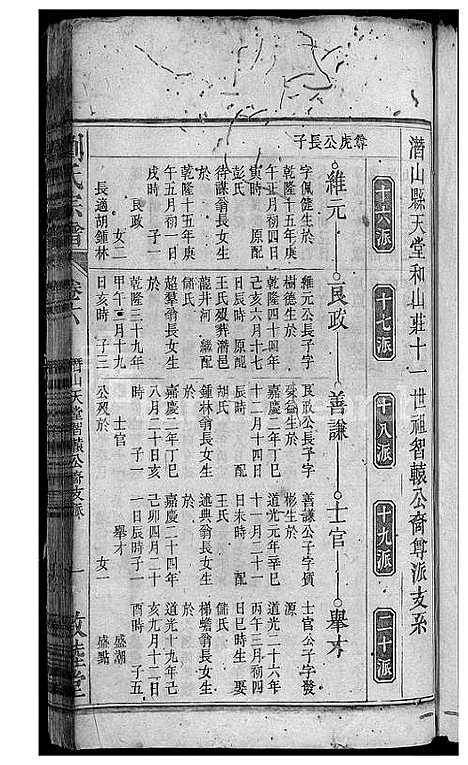 潛山縣天堂和山莊十一世祖智轅公裔尊派支系
十六派
十七派
十八派
十九派
二十派
尊虎公長子
維元
良政
善謙
士官
舉才
字佩健生於
乾隆十五年庚
午正月初四日
寅時 原配
彭氏
待謀翁長女生
於
乾隆十五年庚
午五月初一日
戌時 子一
良政
女二
長適胡鍾林
維元公長子字
樹德生於
乾隆四十四年
己亥六月十七
日辰時 原配
王氏歿葬潛邑
龍井河 繼配
儲氏
超羣翁長女生
於
乾隆三十九年
甲午二月十九
日亥時 子三
良政公長子字
受益生於
嘉慶二年丁巳
十二月十四日
時 原配
胡氏
鍾林翁長女生
於
嘉慶二年丁巳
八月二十日亥
時 子一
士官
公歿於
善謙公子字貢
彬生於
道光元年辛巳
十一月二十一
日未時 配
王氏
述典翁長女生
於
嘉慶二十四年
己卯四月二十
一日辰時子一
舉才
女一
士官公子字發
源
道光二十六年
丙午三月初四
日巳時生 娶
儲氏
梯蟾翁長女生
於
道光十九年己
亥九月十二日
酉時 子五
盛潮
盛點
劉氏宗譜
卷六
潛山天堂智轅公裔支派
一
敦睦堂